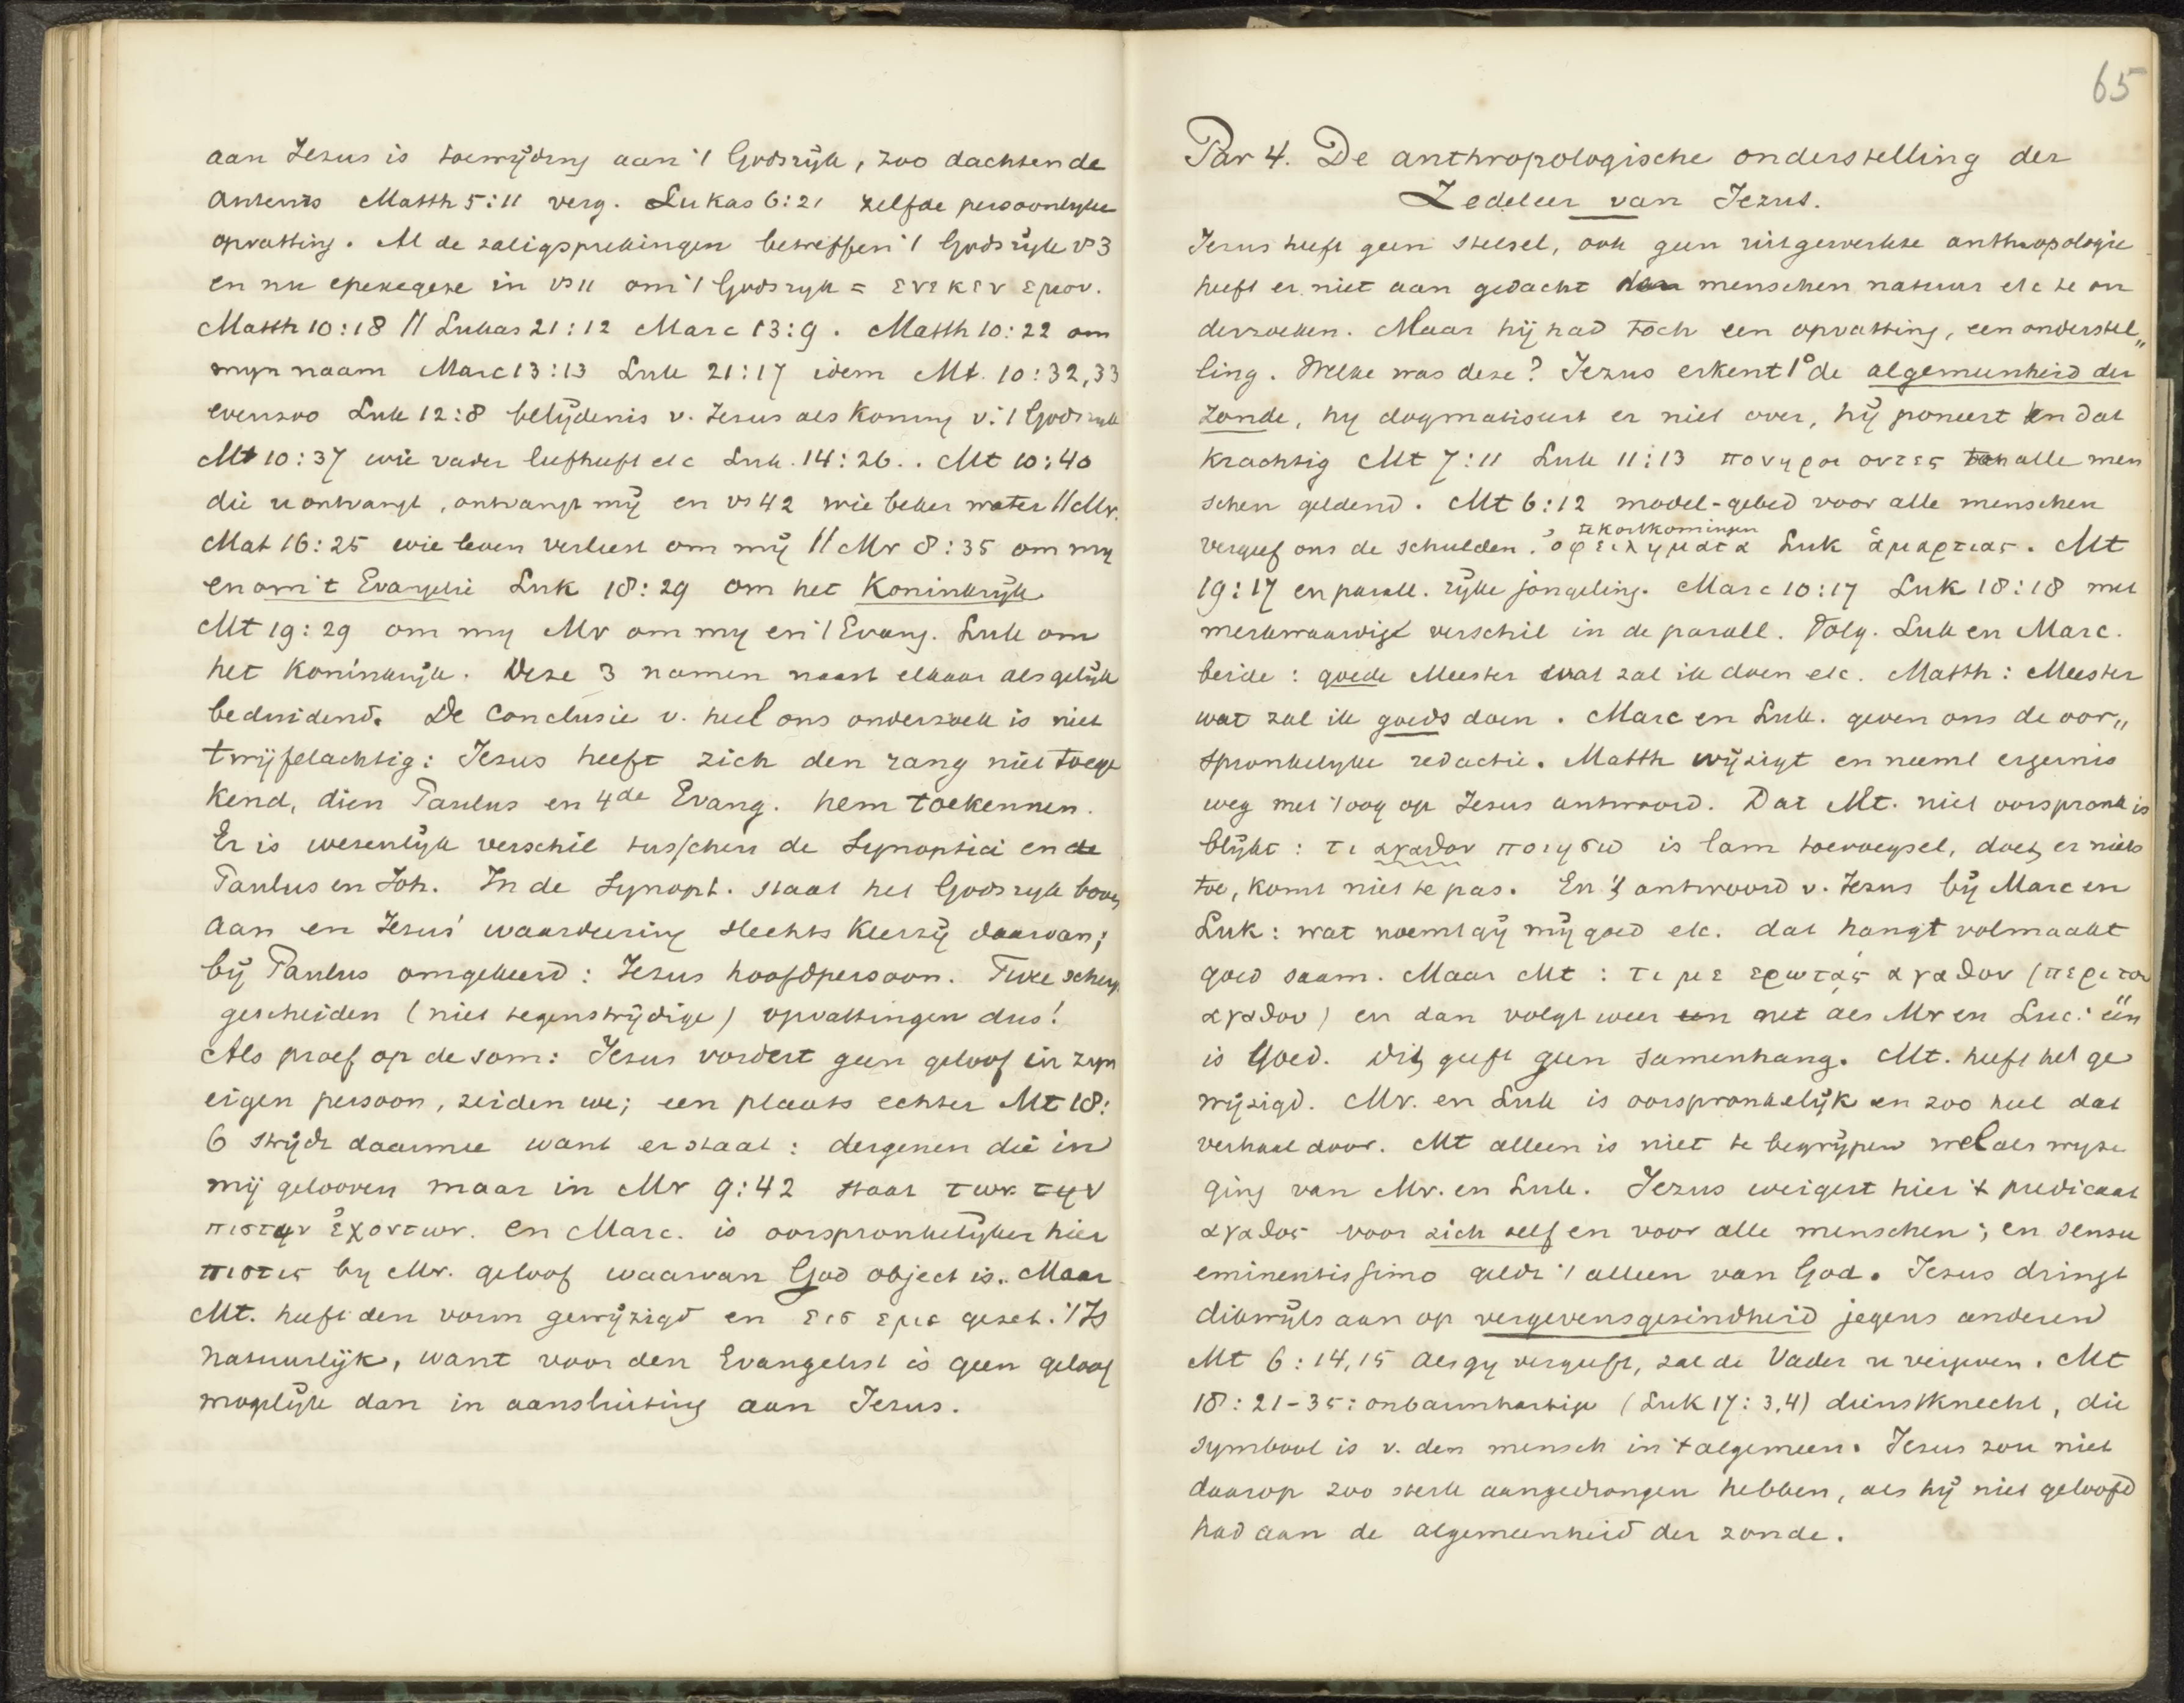 aan Jezus is toewijding aan 't Godsrijk, zoo dachten de
auteurs Matth 5:11 verg. Lukas 6:21 zelfde persoonlyke
opvatting. Al de zaligsprekingen betreffen 't Godsrijk vs 3
en nu epexegese in vs 11 om 't Godsryk = ενεκεν εμου.
Matth 10:18 // Lukas 21:12 Marc 13:9. Matth 10:22 om
myn naam Marc 13:13 Luk 21:17 idem Mt. 10:32,33
evenzoo Luk 12:8 belijdenis v. Jezus als Koning v. 't Godsryk
Mt 10:37 wie vader liefheeft etc Luk. 14:26.. Mt 10:40
die u ontvangt, ontvangt mij en vs 42 wie beker water // Mr.
Mat 16:25 wie leven verliest om mij // Mr 8:35 om my
en om 't Evangelie Luk 18:29 om het Koninkrijk
Mt 19:29 om my Mr om my en 't Evang. Luk om
het Koninkrijk. Deze 3 namen naast elkaar als gelijk
beduidend. De Conclusie v. heel ons onderzoek is niet
twijfelachtig: Jezus heeft zich den rang niet toege
kend, dien Paulus en 4de Evang. hem toekennen.
Er is wezenlijk verschil tusschen de Synoptici en de
Paulus en Joh. In de Synopt. staat het Godsryk boven
aan en Jezus' waardeering slechts Keerzij daarvan;
bij Paulus omgekeerd: Jezus hoofdpersoon. Twee scherp
gescheiden (niet tegenstrijdige) opvattingen dus!
Als proef op de som: Jezus vordert geen geloof in zyn
eigen persoon, zeiden we; een plaats echter Mt 18:
6 strijdt daarmee want er staat: dergenen die in
mij gelooven maar in Mr 9:42 staat των την
πιστην ἐχοντων. en Marc. is oorspronkelijker hier
πιστις by Mr. geloof waarvan God object is. Maar
Mt. heeft den vorm gewijzigd en εισ εμε gezet. 't Is
natuurlijk, want voor den Evangelist is geen geloof
mogelijk dan in aansluiting aan Jezus.
65
Par 4. De anthropologische onderstelling der
Zedeleer van Jezus.
Jezus heeft geen stelsel, ook geen uitgewerkte anthropologie
heeft er niet aan gedacht den menschen natuur etc te on
derzoeken. Maar hij had toch een opvatting, een onderstel„
ling. Welke was deze? Jezus erkent 1° de algemeenheid der
zonde, hy dogmatiseert er niet over, hij poneert en dat
krachtig Mt 7:11 Luk 11:13 πονηροι οντες alle men
schen geldend. Mt 6:12 model-gebed voor alle menschen
te kortkomingen
vergeef ons de schulden. ὀφειληματα Luk ἁμαρτιας. Mt
19:17 en parall. rijke jongeling. Marc 10:17 Luk 18:18 met
merkwaardigt verschil in de parall. Volg. Luk en Marc.
beide: goede Meester wat zal ik doen etc. Matth: Meester
wat zal ik goeds doen. Marc en Luk. geven ons de oor„
spronkelyke redactie. Matth wijzigt en neemt ergernis
weg met 't oog op Jezus antwoord. Dat Mt. niet oorspronk is
blijkt: τι αγαθον ποιησω is lam toevoegsel, doet er niets
toe, komt niet te pas. En 't antwoord v. Jezus bij Marc en
Luk: wat noemt gij mij goed etc. dat hangt volmaakt
goed saam. Maar Mt: τι με ερωτας αγαθον (περι του
αγαθου) en dan volgt weer een net als Mr en Luc: één
is goed. Dit geeft geen samenhang. Mt. heeft het ge
wijzigd. Mr. en Luk is oorspronkelijk en zoo heel dat
verhaal door. Mt alleen is niet te begrijpen wel als wyzi
ging van Mr. en Luk. Jezus weigert hier 't predicaat
αγαθος voor zich zelf en voor alle menschen; en sensu
eminentissimo geldt 't alleen van God. Jezus dringt
dikwijls aan op vergevensgezindheid jegens anderen
Mt 6:14,15 Als gy vergeeft, zal de Vader u vergeven. Mt
18:21-35: onbarmhartige (Luk 17:3,4) dienstknecht, die
symbool is v. den mensch in 't algemeen. Jezus zou niet
daarop zoo sterk aangedrongen hebben, als hij niet geloofd
had aan de algemeenheid der zonde.